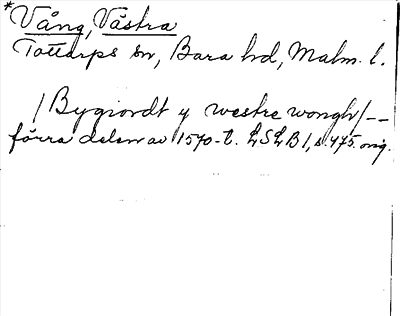 *Vång, Västra
Tottarps sn, Bara hd, Malm. l.
/Bygiordt y westre wongh/--
förra delen av 1570-t. LSLB1, s. 475. orig.